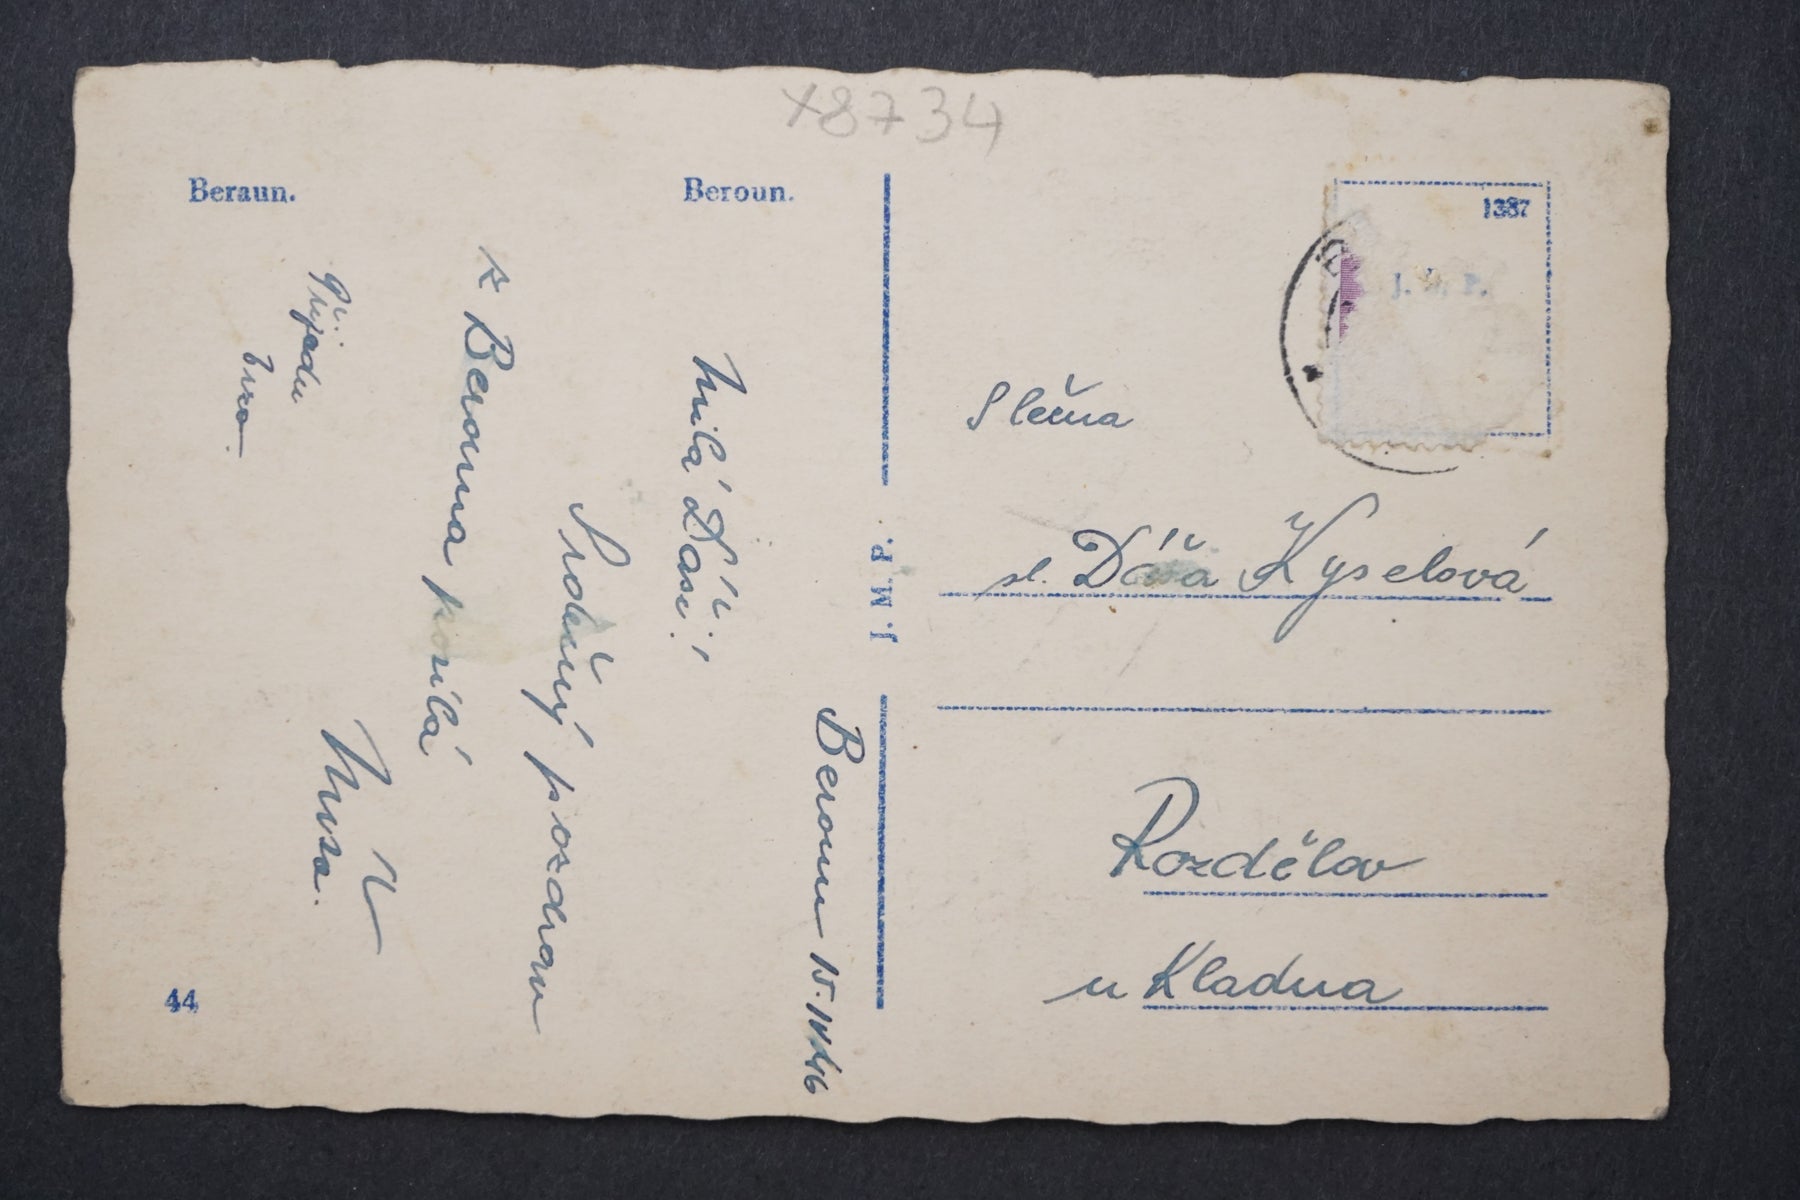 x8734
Beraun.
Beroun.
Beroun 15. IV 46
Milá Dášo!
Srdečný pozdrav
z Berouna posílá
Př.
Přijedu
brzo.
44
J. M. P.
1387
Slečna
sl. Dáša Kyselová
Rozdělov
u Kladna